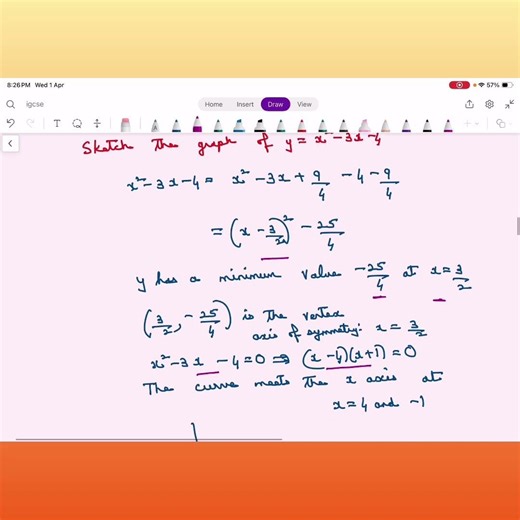 8:26 PM Wed 1 Apr 57%
igcse Home Insert Draw View
Sketch the graph of y = x² - 3x - 4
x² - 3x - 4 = x² - 3x + 9/4 - 4 - 9/4
= (x - 3/2)² - 25/4
y has a minimum value -25/4 at x = 3/2
(3/2, -25/4) is the vertex
axis of symmetry: x = 3/2
x² - 3x - 4 = 0 ⇒ (x - 4)(x + 1) = 0
The curve meets the x axis at
x = 4 and -1